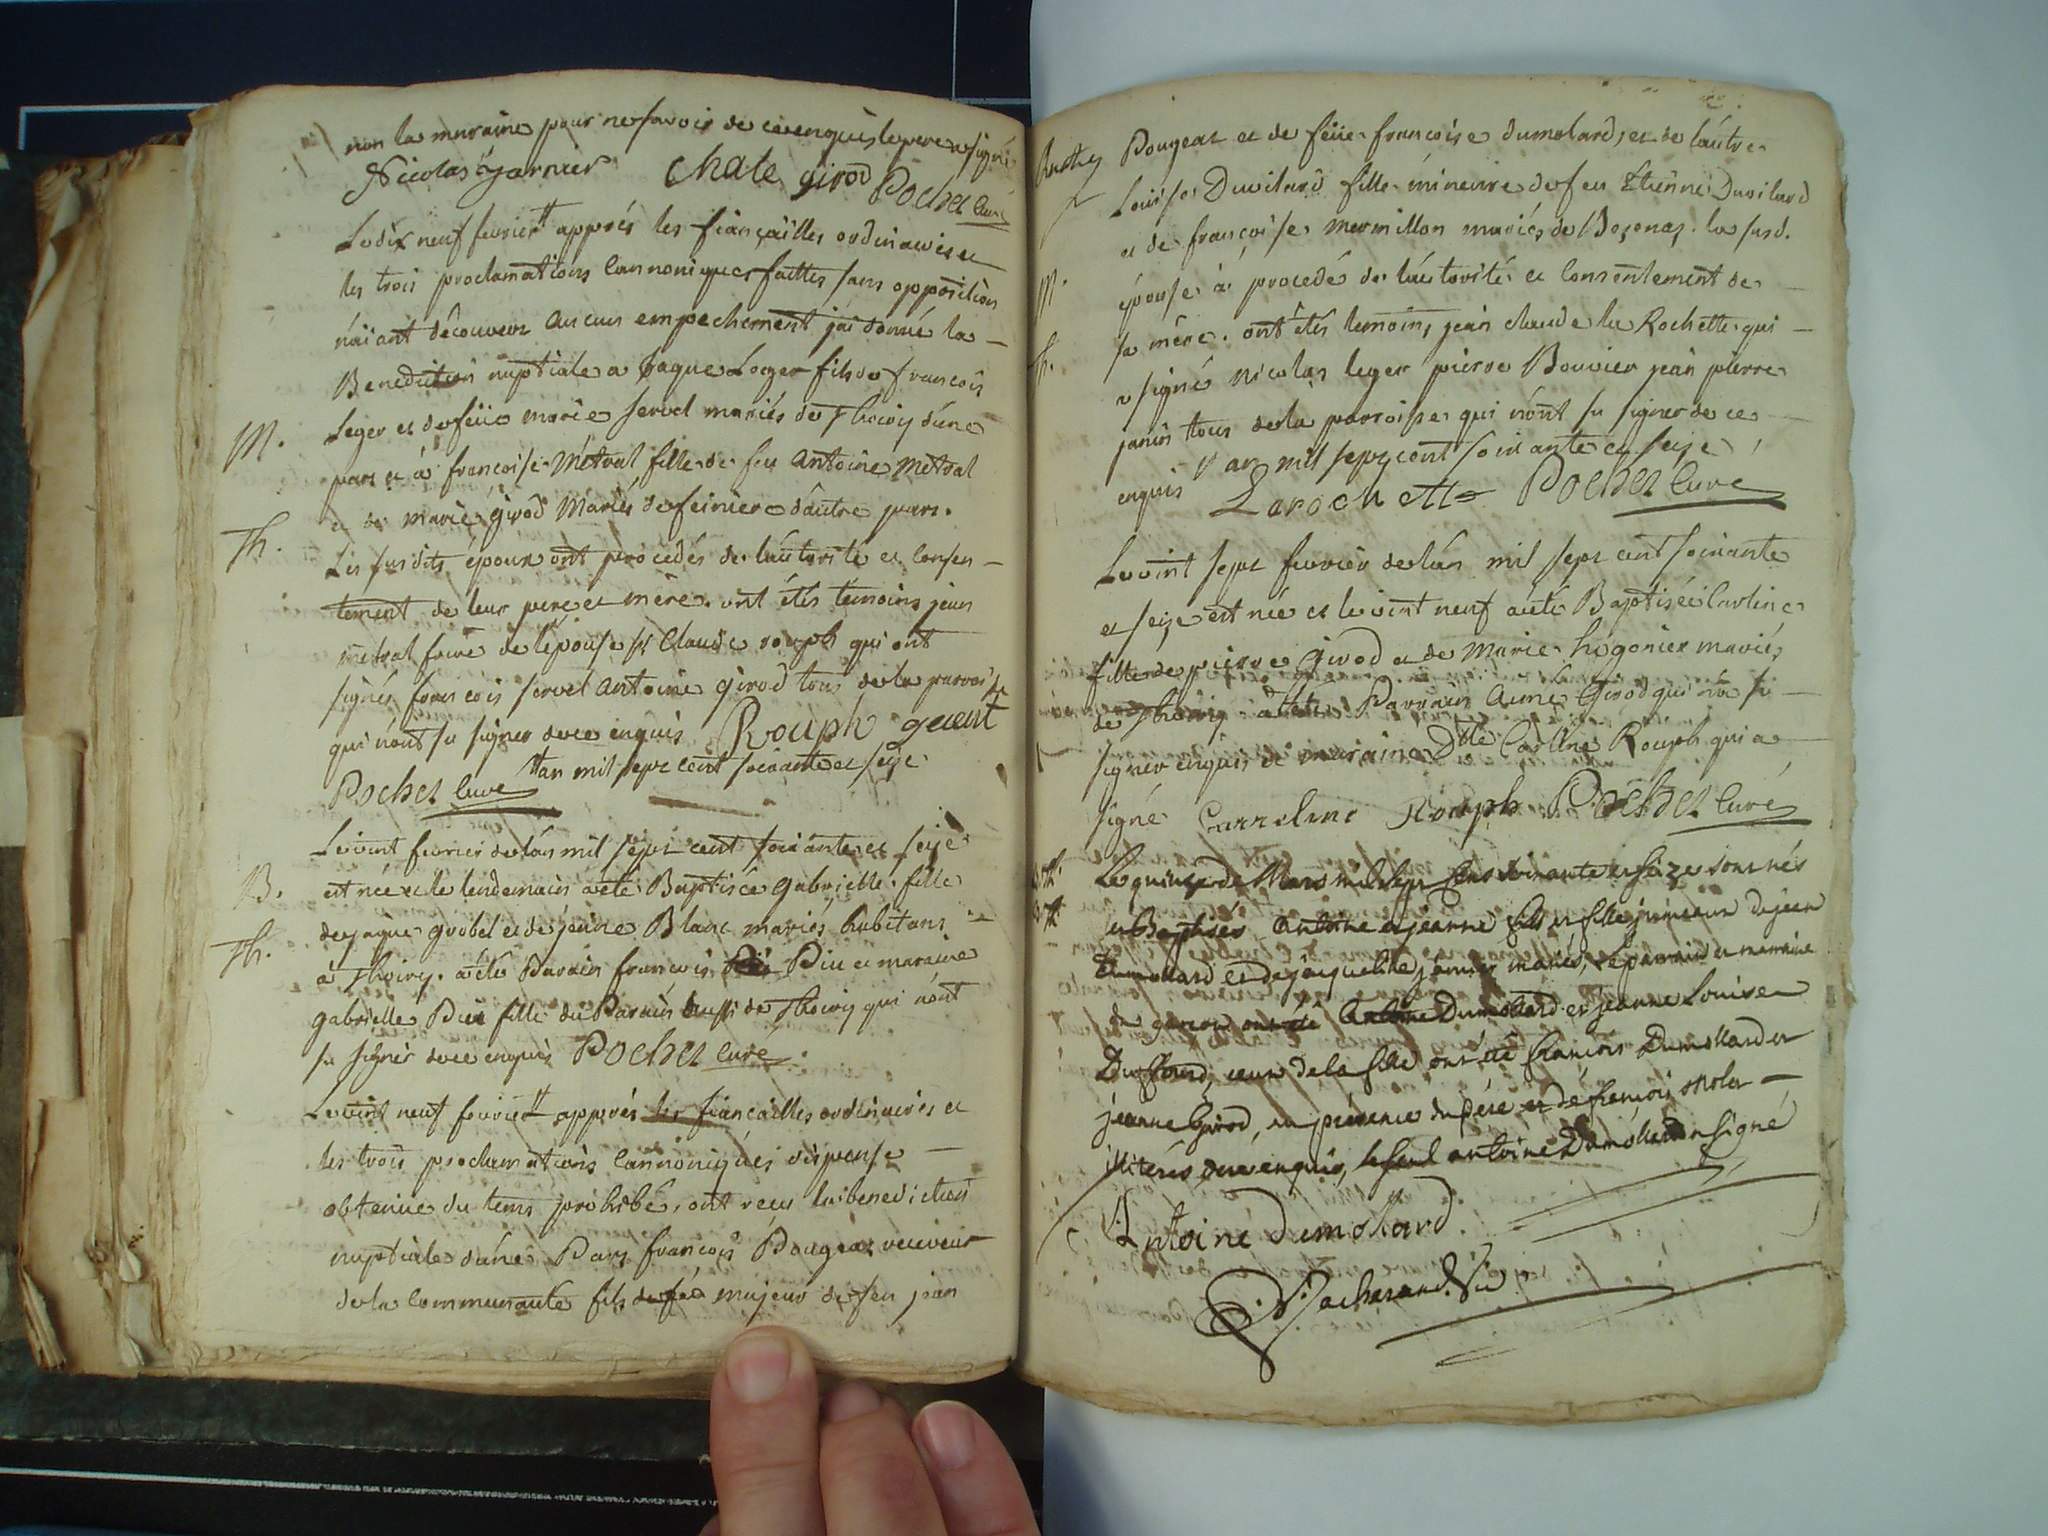 non la maraine pour ne savoir de ce enquis le pere a signé
Nicolas garnier chale girod Pochet curé
Le dix neuf fevrier tt apprés les fiançailles ordinaires et
les trois proclamations cannoniques faittes sans opposition
n'aiant découvert aucun empechement j'ai donné la
Benediction nuptiale a Jaque Leger fils de francois
M. Leger et de feüe marie servel mariés de Thoiry d'une
part et à francoise Métral fille de feu Antoine Métral
et de marie girod Mariés de feiniere d'autre part.
Th. Les susdits époux ont procedés de l'autorité et consen
tement de leur pere et mère. ont étés témoins jean
métral frere de l'épouse sr Claude rouph qui ont
signés francois servel antoine girod tous de la parroisse
qui n'ont su signer de ce enquis Rouph
Pochet curé tt an mil sept cent soixante et seize
Le vint fevrier de l'an mil sept cent soixante et seize
B. est née et le lendemain a eté Baptisée gabrielle fille
de jaque grobel et de jeanne Blanc mariés habitans
Th. à Thoiry. a été Parain francois Piu et maraine
gabrielle Piu fille du Parain aussi de Thoiry qui n'ont
su signer de ce enquis Pochet curé
Le vint neuf fevrier tt apprés les fiançailles ordinaires et
les trois proclamations cannoniques dispense
obtenue du tems prohibé, ont reçu la benediction
nuptiale d'une Part francois Pougeat receveur
de la communauté fils majeur de feu jean
Pougeat et de feüe francoise dumolard, et de l'autre
Louise Duvilard fille mineure de feu Etienne Duvilard
et de francoise mermillon mariés de Bosonas. la susd.
M. épouse à procedé de l'autorité et consentement de
Th. sa mère. ont étés temoins, jean claude la Rochette qui
a signé nicolas leger pierre Bouvier jean pierre
janin tous de la parroisse qui n'ont su signer de ce
enquis l'an mil sept cent soixante et seize
Larochette Pochet curé
Le vint sept fevrier de l'an mil sept cent soixante
et seize est née et le vint neuf a eté Baptisée Carline
fille de pierre girod et de Marie hugonier mariés
de Thoiry a été Parrain Aimé Girod qui n'a su
signer enquis et maraine Dlle Carline Rouph qui a
signé Carreline Rouph Pochet curé
Le quinze de Mars mil sept cens soixante et seize sont nés
et Baptisés Antoine et jeanne fils et fille jumeaux de jean
Dumollard et de jaqueline janier mariés, le parrain et marraine
du garçon ont été Antoine Dumollard et jeanne Louise
Duffour, ceux de la fille ont été francois Dumollard et
jeanne Girod, en présence du père et de francois
illiterés, de ce enquis, le seul antoine Dumollard a signé
Antoine Dumollard